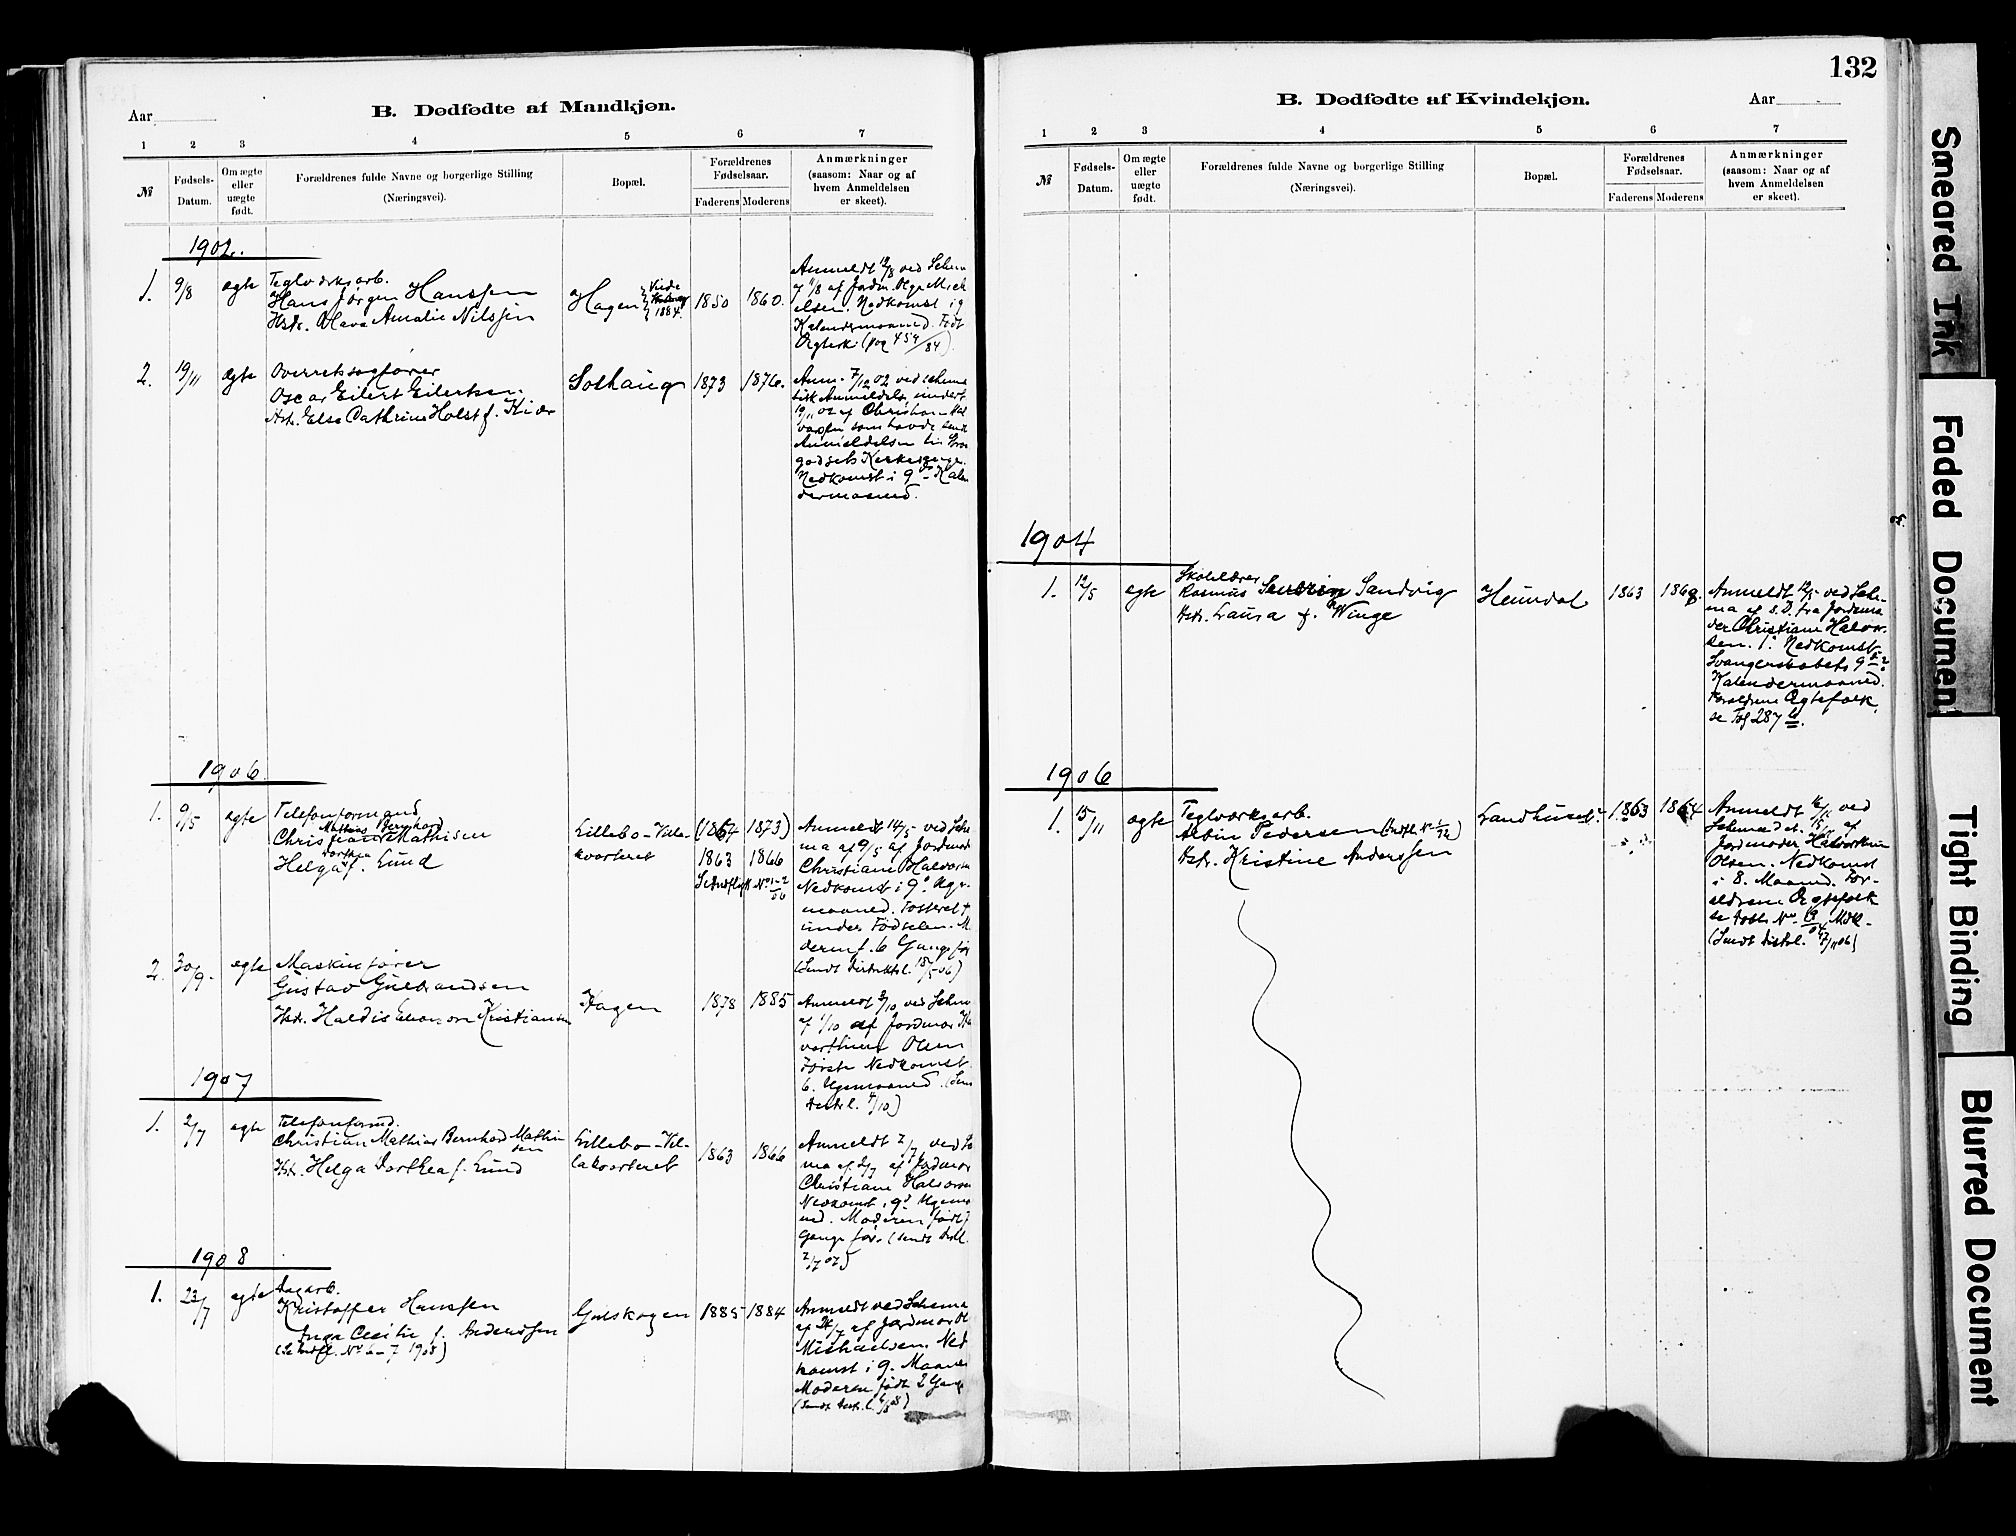 B. Dødfødte af Mandkjøn.
Aar
1 2 3 4 5 6 7
№
Fødsels-Datum.
Om ægte eller uægte født.
Forældrenes fulde Navne og borgerlige Stilling
(Næringsvei).
Bopæl.
Forældrenes Fødselsaar.
Faderens Moderens
Anmærkninger
(saasom: Naar og af
hvem Anmeldelsen
er skeet).
1902.
1. 9/8 ægte
Teglværksarb.
Hans Jørgen Hanssen
Hstr. Amalie Nilssen
Hagen
1884.
1850 1860.
Anmeldt 12/8 ved Schema
af 11/8 af Jordm. Olga Mich
elsen. Nedkomst i 9
Kalendermaaned. Født
Ægtesk. (pag 459/84).
2. 19/11 ægte
Overretssagfører
Oscar Eilert Eilertsen.
Hstr. Else Cathrine Holst f. Kiær
Solhaug
1873 1876.
Anm. 7/12 02 ved schema
tisk Anmeldelse, undert.
19/11 02 af Christiane Hal
vorsen som havde sendt
Anmeldelsen til Strøm
godsets Kirkesanger.
Nedkomst i 9de Kalen
dermaaned.
1906
1. 9/5 ægte
Telefonformand
Mathias Bernhard
Christian Mathisen
Dorthea
Helga f. Lund
Lillebo - Villa
kvarteret
(1864 1873)
1863 1866
Anmeldt 14/5 ved Sche
ma af 9/5 af Jordmoder
Christiane Halvorsen
Nedkomst i 9de Uge-
maaned. Fosteret †
under Fødselen. Mo
deren f. 6 Gange før
(Sendt distriktsl. 18/5 06)
2. 30/9. ægte
Maskinfører
Gustav Gulbrandsen
Hstr. Haldis Eleonore Kristiansen
Hagen
1878 1885
Anmeldt 2/10 ved Schema
af 1/10 af Jordmor Hal
varthine Olsen
Første Nedkomst
6. Ugemaaned. (Sendt
distrl. 4/10)
1907
1. 2/7 ægte
Telefonformd.
Christian Mathias Bernhard Mathi
sen
Hstr. Helga Dorthea f. Lund
Lillebo - Vil-
lakvarteret
1863 1866
Anmeldt 2/7 ved Sche
ma af 2/7 af Jordmor
Christiane Halvorsen
Nedkomst i 9de Ugemaa
ned. Moderen født 7
Gange før. (sendt distl.
2/7 07)
1908
1. 23/7 ægte
Dagarb.
Kristoffer Hanssen
Inga Cecilie f. Anderssen
(Se Indfl. No 6-7 1908)
Gulskogen
1885 1884
Anmeldt ved Schema
af 24/7 af Jordmor Ol
Michaelsen. Ned
komst i 9. Maaned
Moderen født 2 Gange
(Sendt distr. l. 1/8 08)
132
B. Dødfødte af Kvindekjøn.
Aar
1 2 3 4 5 6 7
№
Fødsels-Datum.
Om ægte eller uægte født.
Forældrenes fulde Navne og borgerlige Stilling
(Næringsvei).
Bopæl.
Forældrenes Fødselsaar.
Faderens Moderens
Anmærkninger
(saasom: Naar og af
hvem Anmeldelsen
er skeet).
1904
1. 12/5 ægte
Skolelærer
Rasmus Severin Sandvig
Hstr. Laura f. Winge
Heimdal
1863 1868.
Anmeldt 12/5 ved Sche-
ma af s.D. fra Jordmo
der Christiane Halvor-
sen. 1ste Nedkomst
Svangerskabets 9de
Kalendermaaned.
Forældrene Ægtefolk,
se Fol 287
1906
1. 15/11 ægte
Teglværksarb.
Albin Pedersen
Hstr. Kristine Anderssen
Landhuset
1863 1864
Anmeldt 16/11 ved
Schema dat. 15/11 af
Jordmoder Halvarthine
Olsen. Nedkomst
i 8. Maaned. For-
ældrene Ægtefolk
(Sendt Distrl. 17/11 06)
Smeared Ink
Faded Document
Tight Binding
Blurred Document